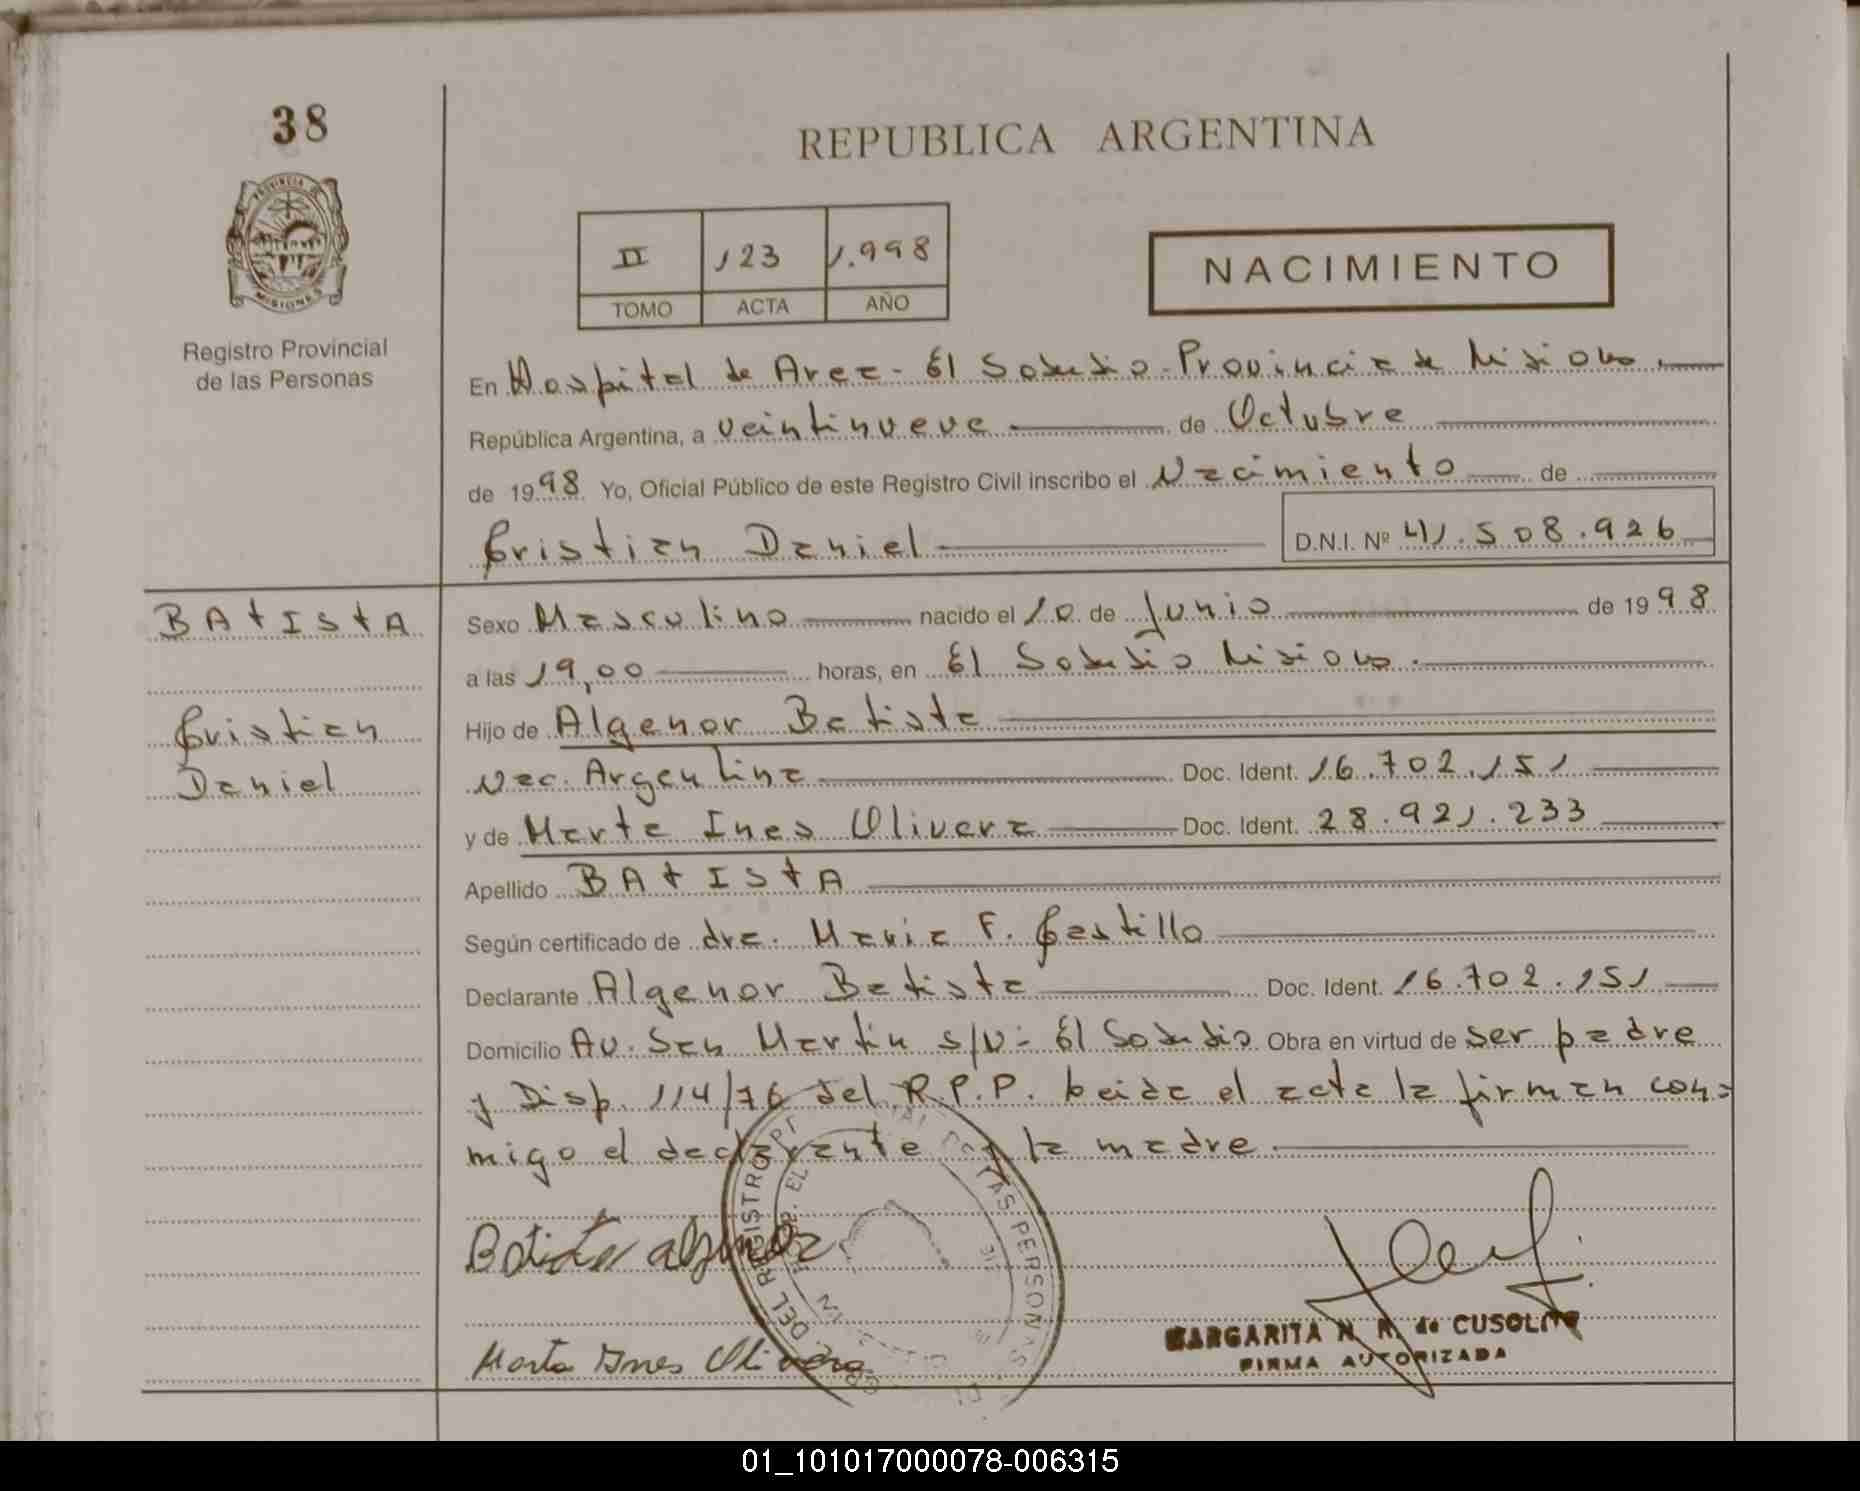 38
REPUBLICA ARGENTINA
PROVINCIA DE
MISIONES
Registro Provincial
de las Personas
II 123 1.998
TOMO ACTA AÑO
NACIMIENTO
En Hospital de Area - El Soberbio - Provincia de Misiones.
República Argentina, a veintinueve de Octubre
de 1998 Yo, Oficial Público de este Registro Civil inscribo el Nacimiento de
Cristian Daniel D.N.I. Nº 41.508.926
BATISTA
Cristian
Daniel
Sexo Masculino nacido el 10 de Junio de 1998
a las 19,00 horas, en El Soberbio Misiones.
Hijo de Algenor Batista
Nac. Argentina Doc. Ident. 16.702.151
y de Marta Ines Olivera Doc. Ident. 28.921.233
Apellido BATISTA
Según certificado de dra. Maria F. Castillo
Declarante Algenor Batista Doc. Ident. 16.702.151
Domicilio Av. San Martin s/N - El Soberbio Obra en virtud de ser padre
y Disp. 114/76 del R.P.P. Leida el acta la firman con=
migo el declarante y la madre
DEL REGISTRO PERSONAS
Batista
Marta Ines Olivera
MARGARITA N. R. de CUSOLITO
FIRMA AUTORIZADA
01_101017000078-006315